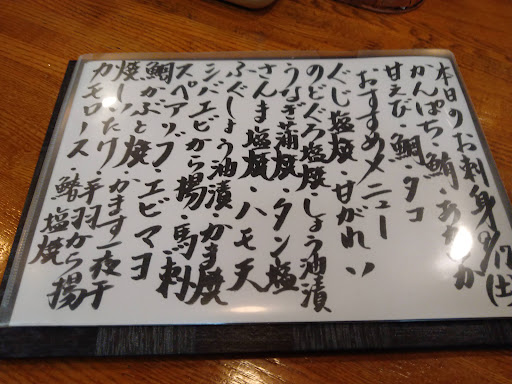 本日のお刺身 9/17(土)
かんぱち・鮪・
甘えび 鯛 タコ
おすすめメニュー
ぐじ塩焼・甘がれい
のどぐろ塩焼・しょう油漬
うなぎ蒲焼・タン塩
さんま塩焼・ハモ天
ふぐしょう油漬・かま焼
シバエビから揚・馬刺
スペアリブ・エビマヨ
鯛かぶと焼・かます一夜干
焼しいたけ・手羽から揚
カモロース 鰆塩焼